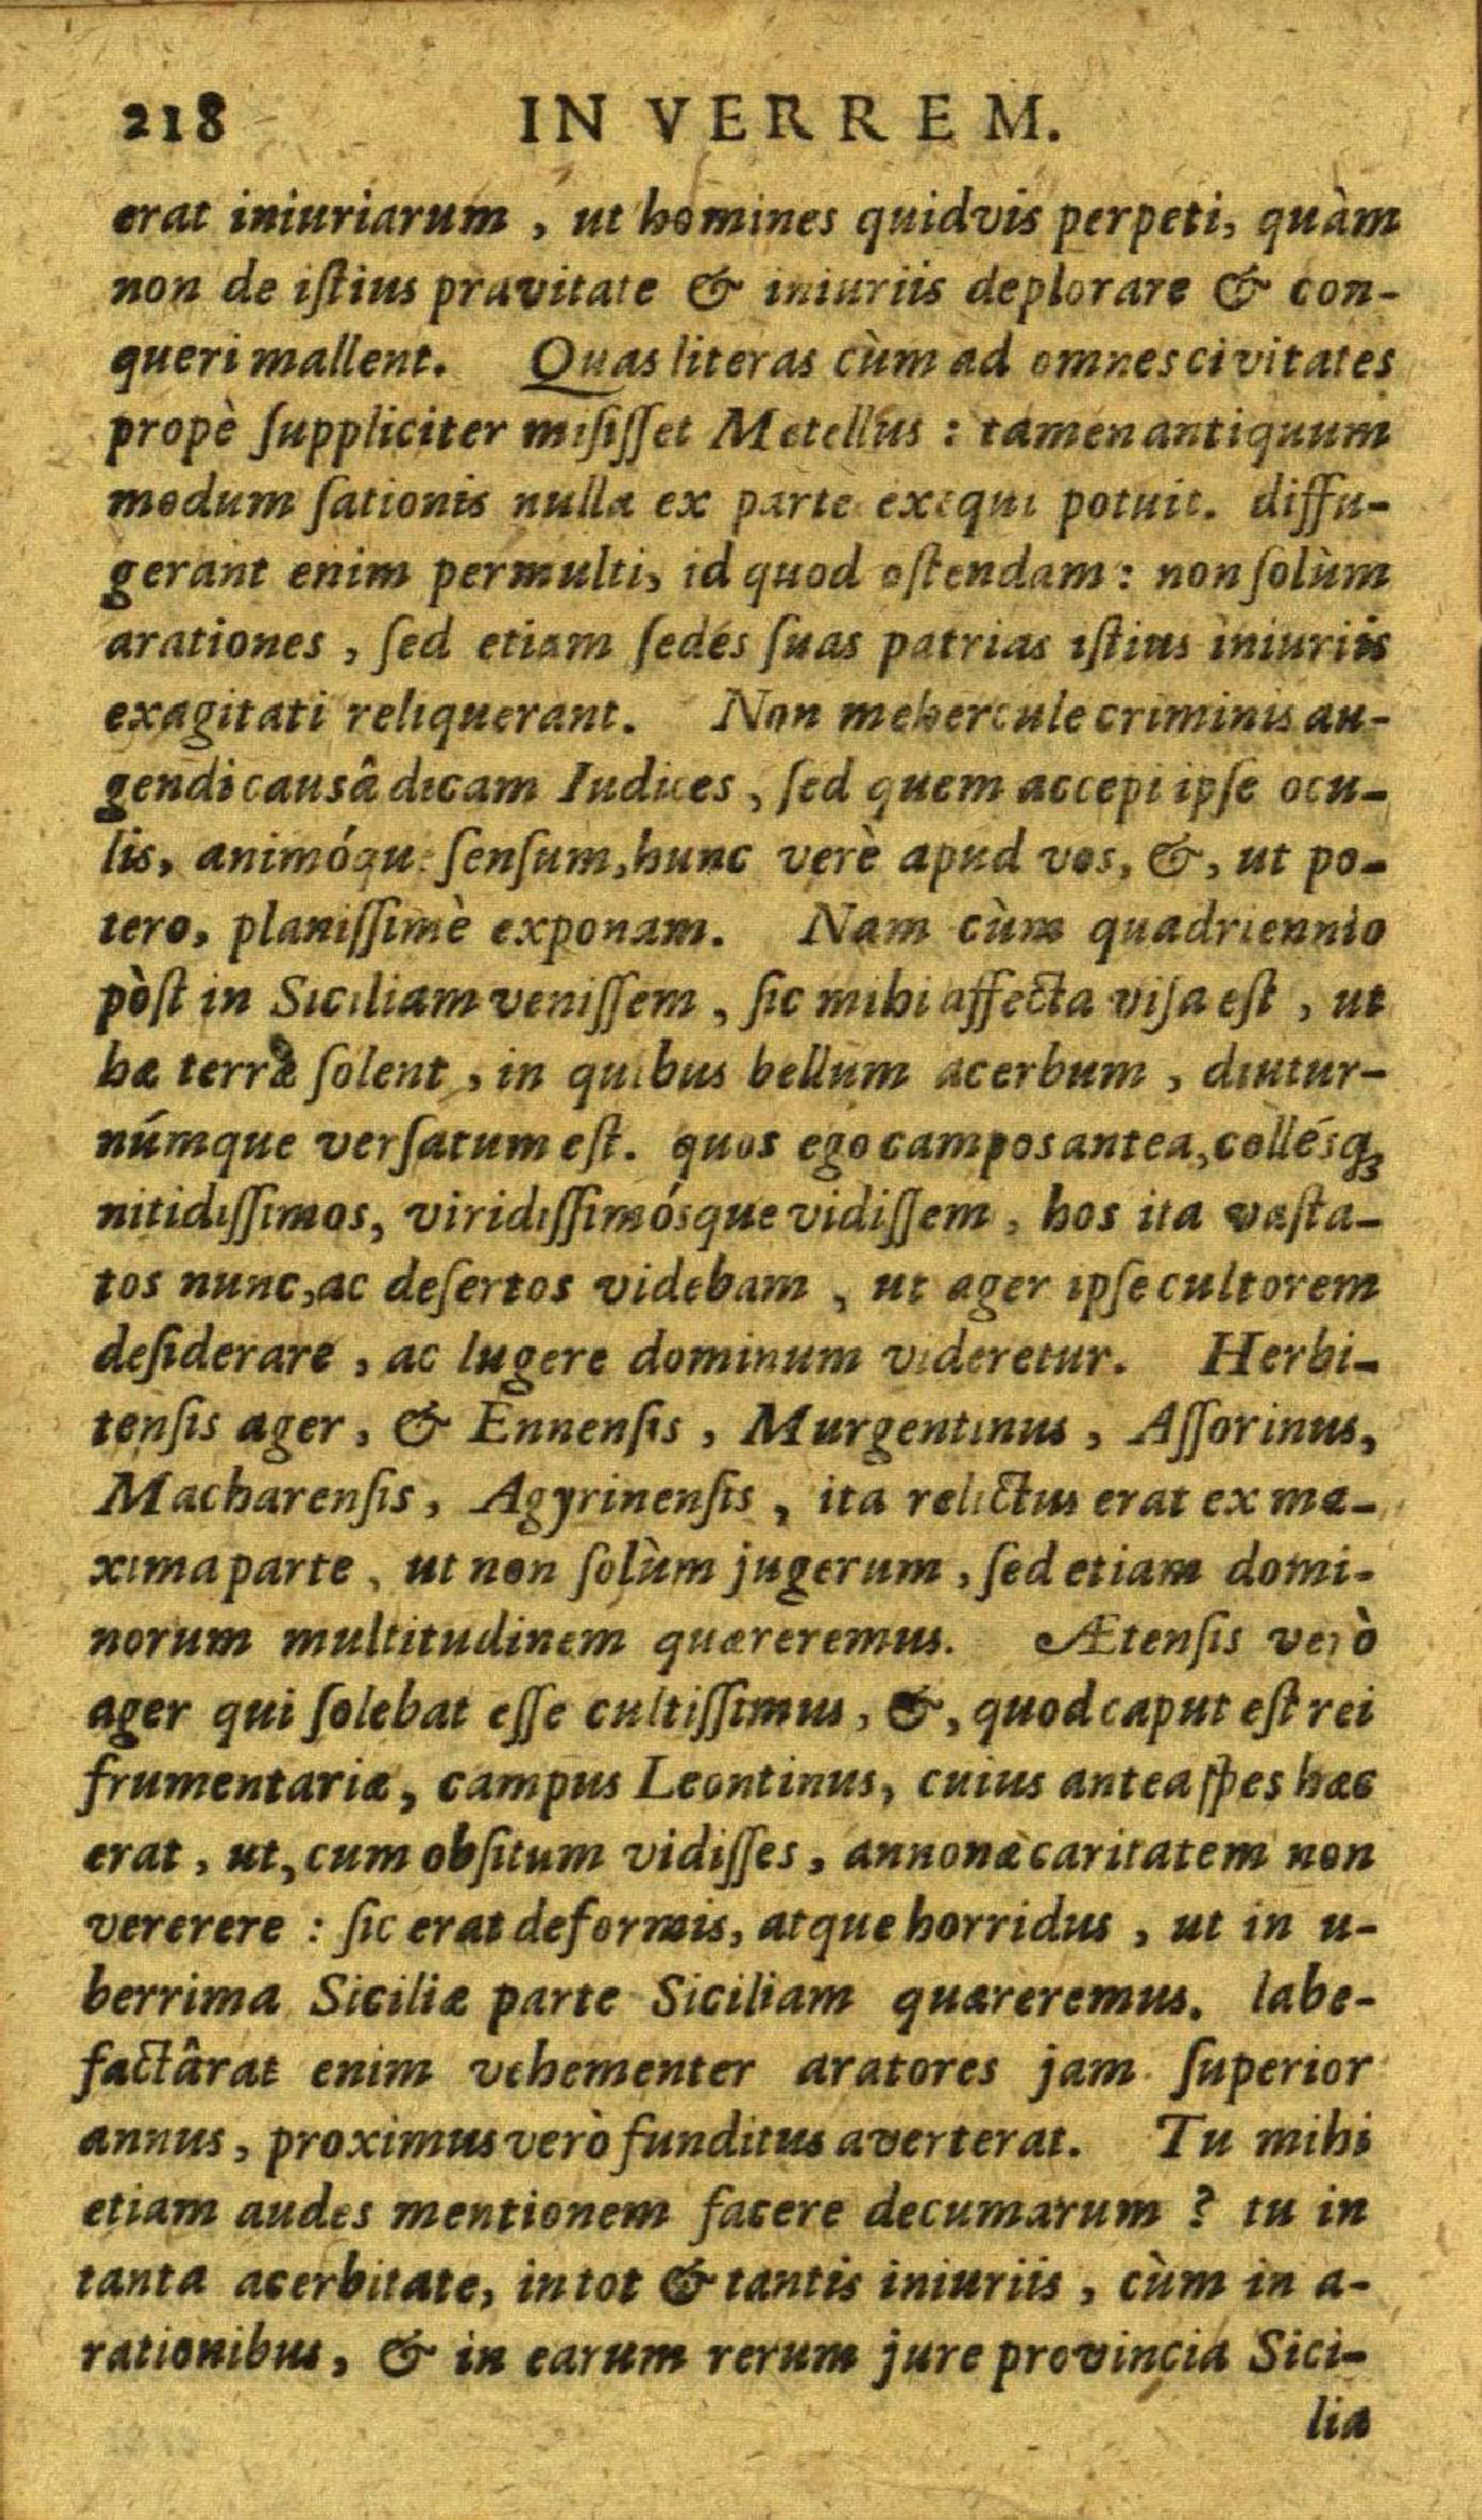 218 IN VERREM.
erat iniuriarum, ut homines quidvis perpeti, quàm
non de iſtius pravitate & iniuriis deplorare & con-
queri mallent. Quas literas cùm ad omnes civitates
propè ſuppliciter miſiſſet Metellus : tamen antiquum
modum ſationis nulla ex parte exequi potuit. diffu-
gerant enim permulti, id quod oſtendam : non ſolùm
arationes, ſed etiam ſedes ſuas patrias iſtius iniuriis
exagitati reliquerant. Non mehercule criminis au-
gendi causâ dicam Iudices, ſed quem accepi ipſe ocu-
lis, animóque ſenſum, hunc verè apud vos, &, ut po-
tero, planiſſimè exponam. Nam cùm quadriennio
pòſt in Siciliam veniſſem, ſic mihi affecta viſa eſt, ut
hæ terræ ſolent, in quibus bellum acerbum, diutur-
númque verſatum eſt. quos ego campos antea, collésq;
nitidiſſimos, viridiſſimósque vidiſſem, hos ita vaſta-
tos nunc, ac deſertos videbam, ut ager ipſe cultorem
deſiderare, ac lugere dominum videretur. Herbi-
tenſis ager, & Ennenſis, Murgentinus, Aſſorinus,
Macharenſis, Agyrinenſis, ita relictus erat ex ma-
xima parte, ut non ſolùm jugerum, ſed etiam domi-
norum multitudinem quæreremus. Ætenſis verò
ager qui ſolebat eſſe cultiſſimus, &, quod caput eſt rei
frumentariæ, campus Leontinus, cuius antea ſpes hæc
erat, ut, cum obſitum vidiſſes, annonæ caritatem non
vererere : ſic erat deformis, atque horridus, ut in u-
berrima Siciliæ parte Siciliam quæreremus. labe-
factârat enim vehementer aratores jam ſuperior
annus, proximus verò funditus averterat. Tu mihi
etiam audes mentionem facere decumarum ? tu in
tanta acerbitate, in tot & tantis iniuriis, cùm in a-
rationibus, & in earum rerum jure provincia Sici-
lia